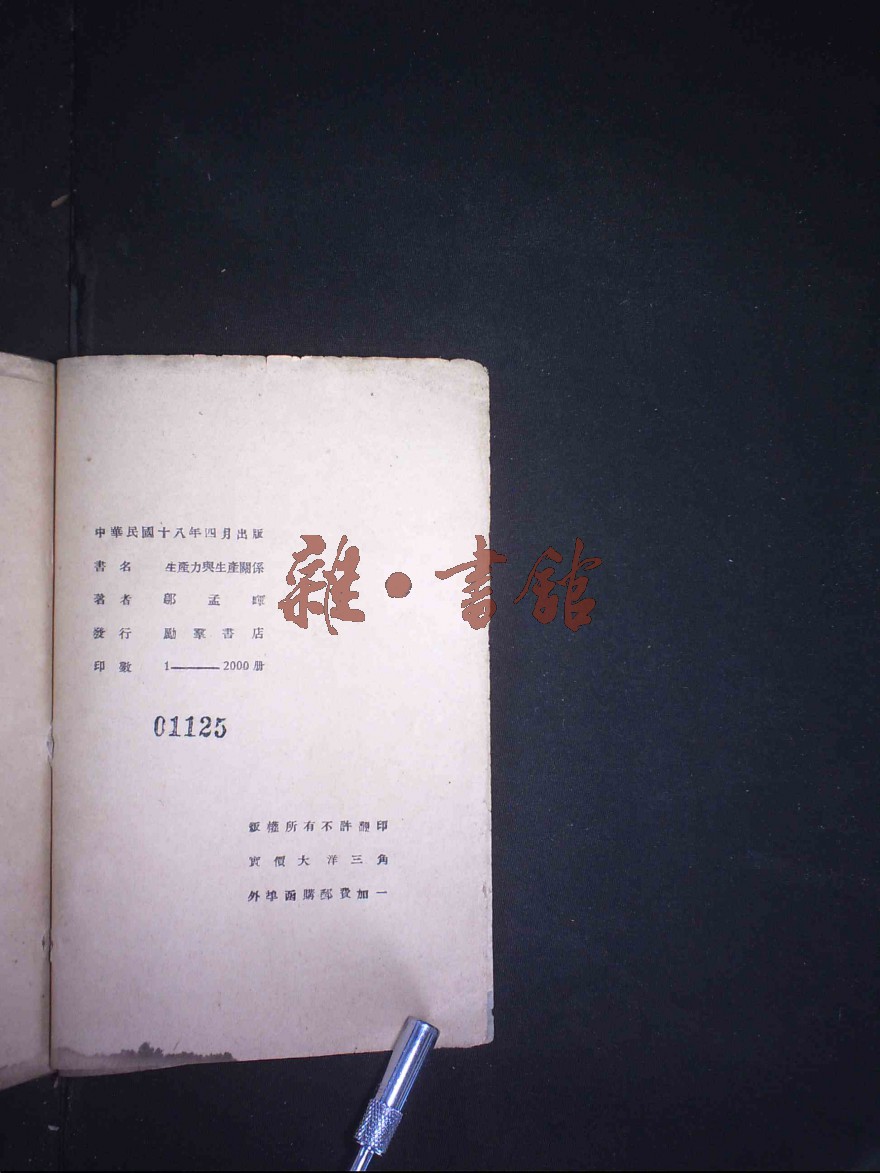 中華民國十八年四月出版
書名 生產力與生產關係
著者 鄔孟暉
發行 勵羣書店
印數 1———2000册
01125
版權所有不許翻印
實價大洋三角
外埠函購郵費加一
雜·書館